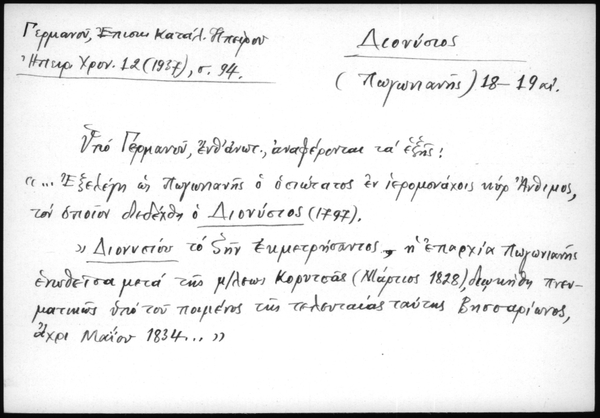 Γερμανοῦ, Ἐπισκ. Κατάλ. Ἠπείρου
Ἠπειρ. Χρον. 12 (1937), σ. 94.
Διονύσιος
(Πωγωνιανῆς) 18–19 αἰ.
Ὑπό Γερμανοῦ, ἔνθ' ἀνωτ., ἀναφέρονται τά ἑξῆς:
«... Ἐξελέγη ὡς Πωγωνιανῆς ὁ ὁσιώτατος ἐν ἱερομονάχοις κύρ Ἄνθιμος,
τόν ὁποῖον διεδέχθη ὁ Διονύσιος (1797).
» Διονυσίου τό ζῆν ἐκμετρήσαντος, ἡ Ἐπαρχία Πωγωνιανῆς
ἑνωθεῖσα μετά τῆς μ/λεως Κορυτσᾶς (Μάρτιος 1828), διῳκήθη πνευ-
ματικῶς ὑπό τοῦ ποιμένος τῆς τελευταίας ταύτης Βησσαρίωνος,
ἄχρι Μαΐου 1834...»